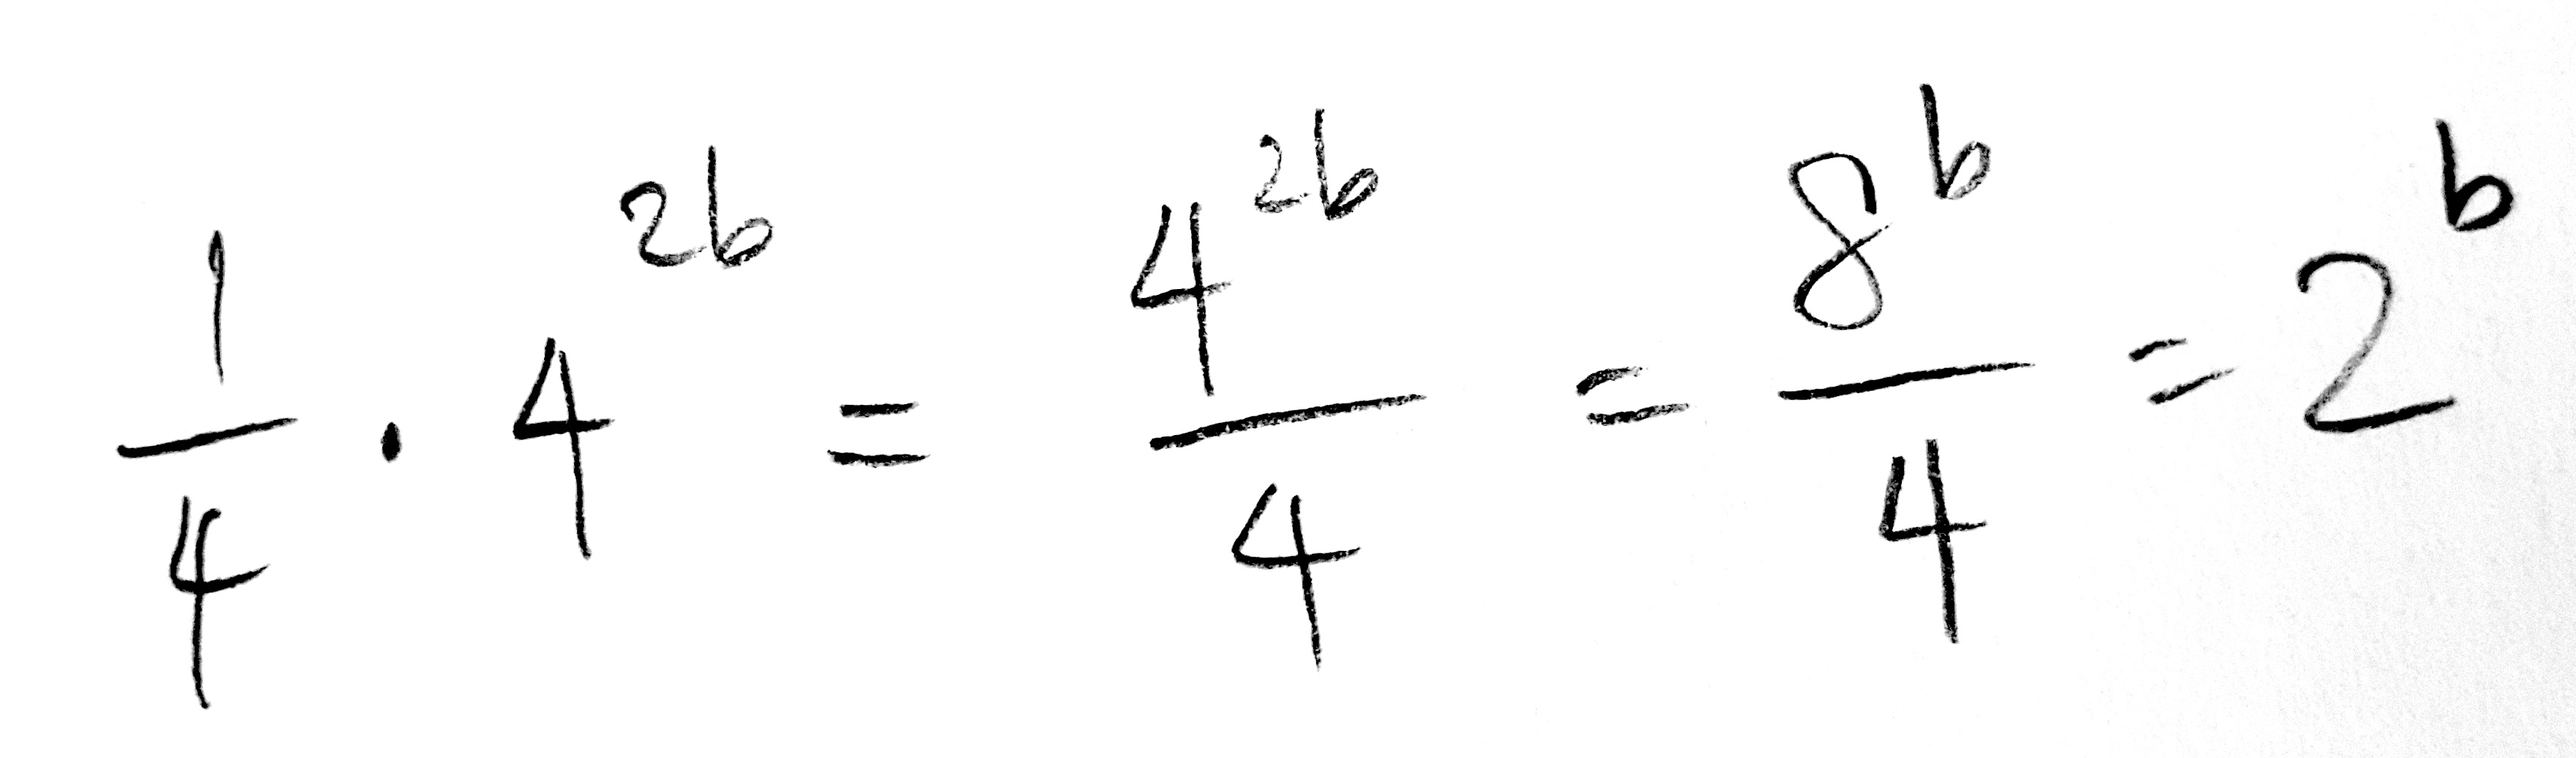 1/4 · 4^{2b} = 4^{2b}/4 = 8^b/4 = 2^b